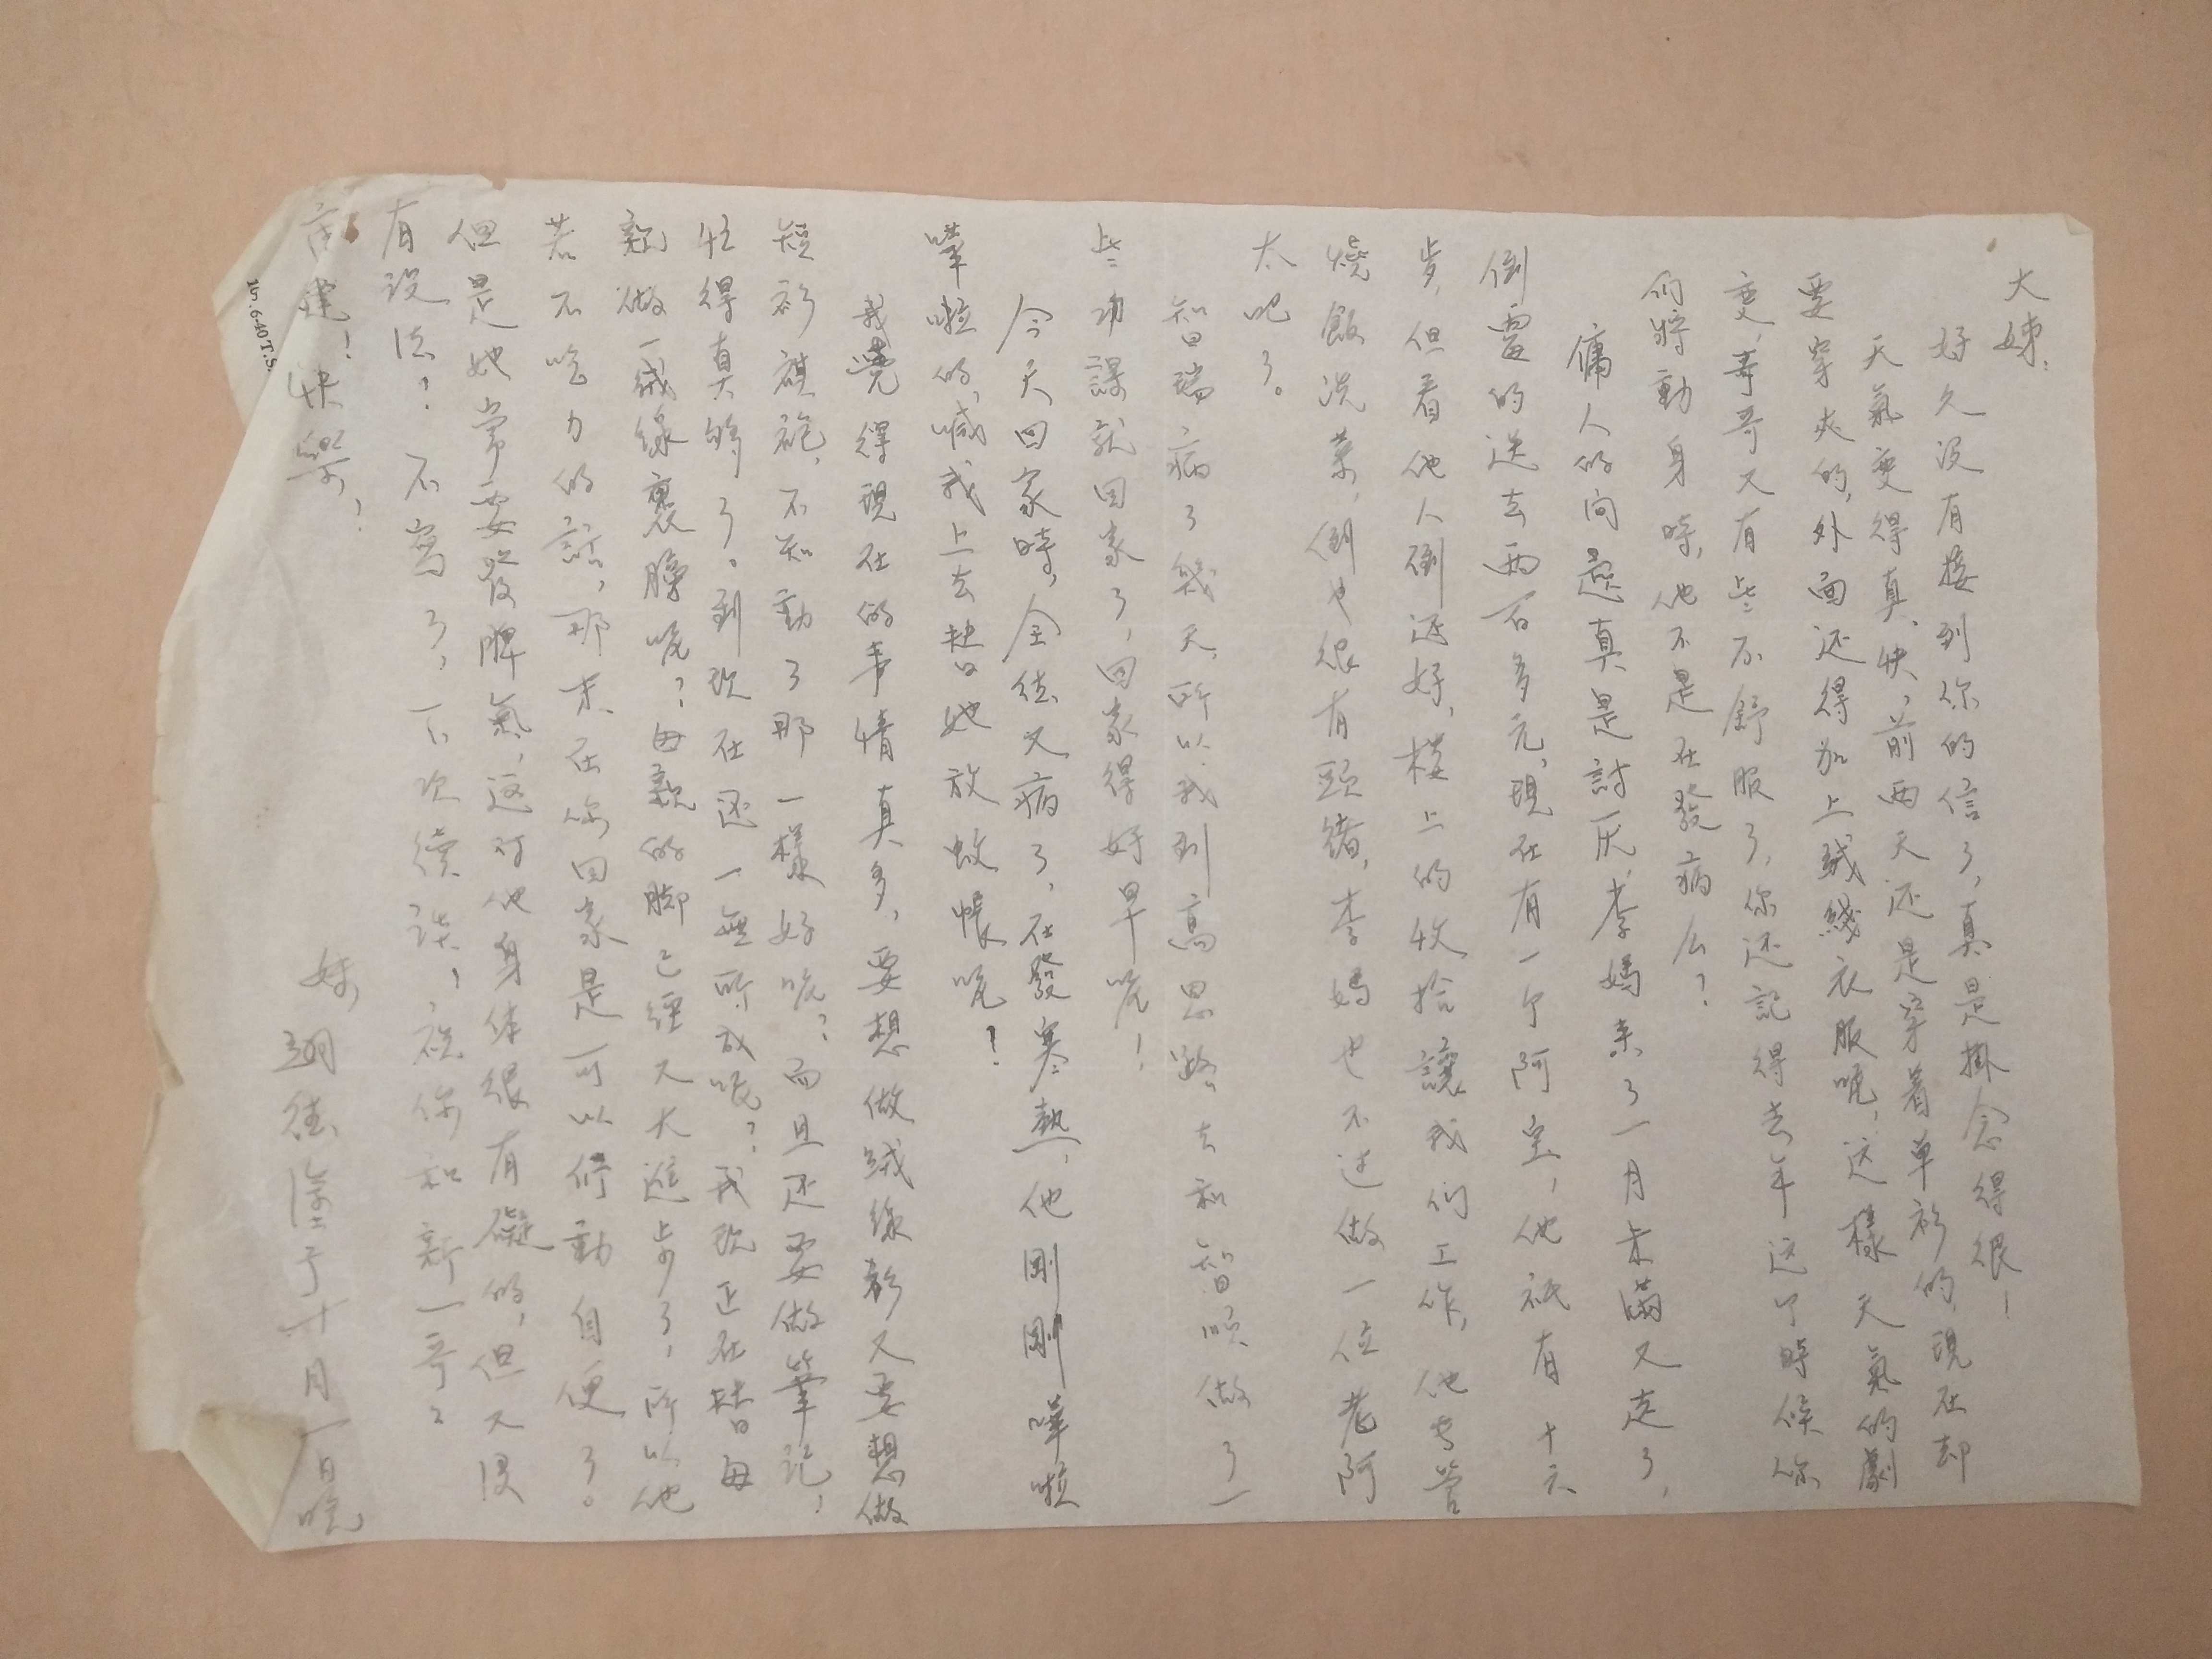 大姊：
好久没有接到你的信了，真是掛念得很！
天氣变得真快，前两天还是穿着单衫的，現在却
要穿夾的，外面还得加上絨綫衣服呢！这樣天氣的劇
变，哥哥又有些不舒服了，你还記得去年这个時候你
们將動身時，他不是在發病么？
傭人的问题真是討厌，李媽来了一月未滿又走了，
倒霉的送去两百多元，現在有一个阿宝，他祇有十六
岁，但看他人倒还好，楼上的收拾讓我们工作，他专管
燒飯洗菜，倒也很有頭绪，李媽也不过做一位老阿
太吧了。
智瑞病了幾天，所以我到高恩路去和智順做了一
些功課就回家了，回家得好早呢！
今天回家時，全佳又病了，在發寒熱，他剛剛嘩啦
嘩啦的喊我上去替她放蚊帳呢！
我覺得現在的事情真多，要想做絨線衫又要想做
短衫旗袍，不知動了那一樣好呢？而且还要做筆記！
忙得真够了。到现在还一無所成呢？我现正在替母
親做一絨線裹膀呢？母親的脚已經大大進步了，所以他
若不吃力的話，那末在你回家是可以行動自便了。
但是她常要發脾氣，这对他身体很有礙的，但又没
有設法？不寫了，下次續談！祝你和新一哥之
康健！快樂！
妹
翊佳 于十月一日晚
10.6.40T.S.